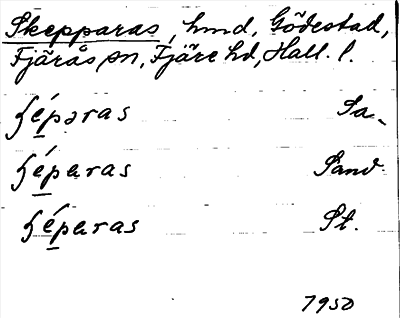 Skepparas, hmd, Gödestad,
Fjärås sn, Fjäre hd, Hall. l.
ɧéparas Sa.
ɧéparas Sand.
ɧéparas St.
1950